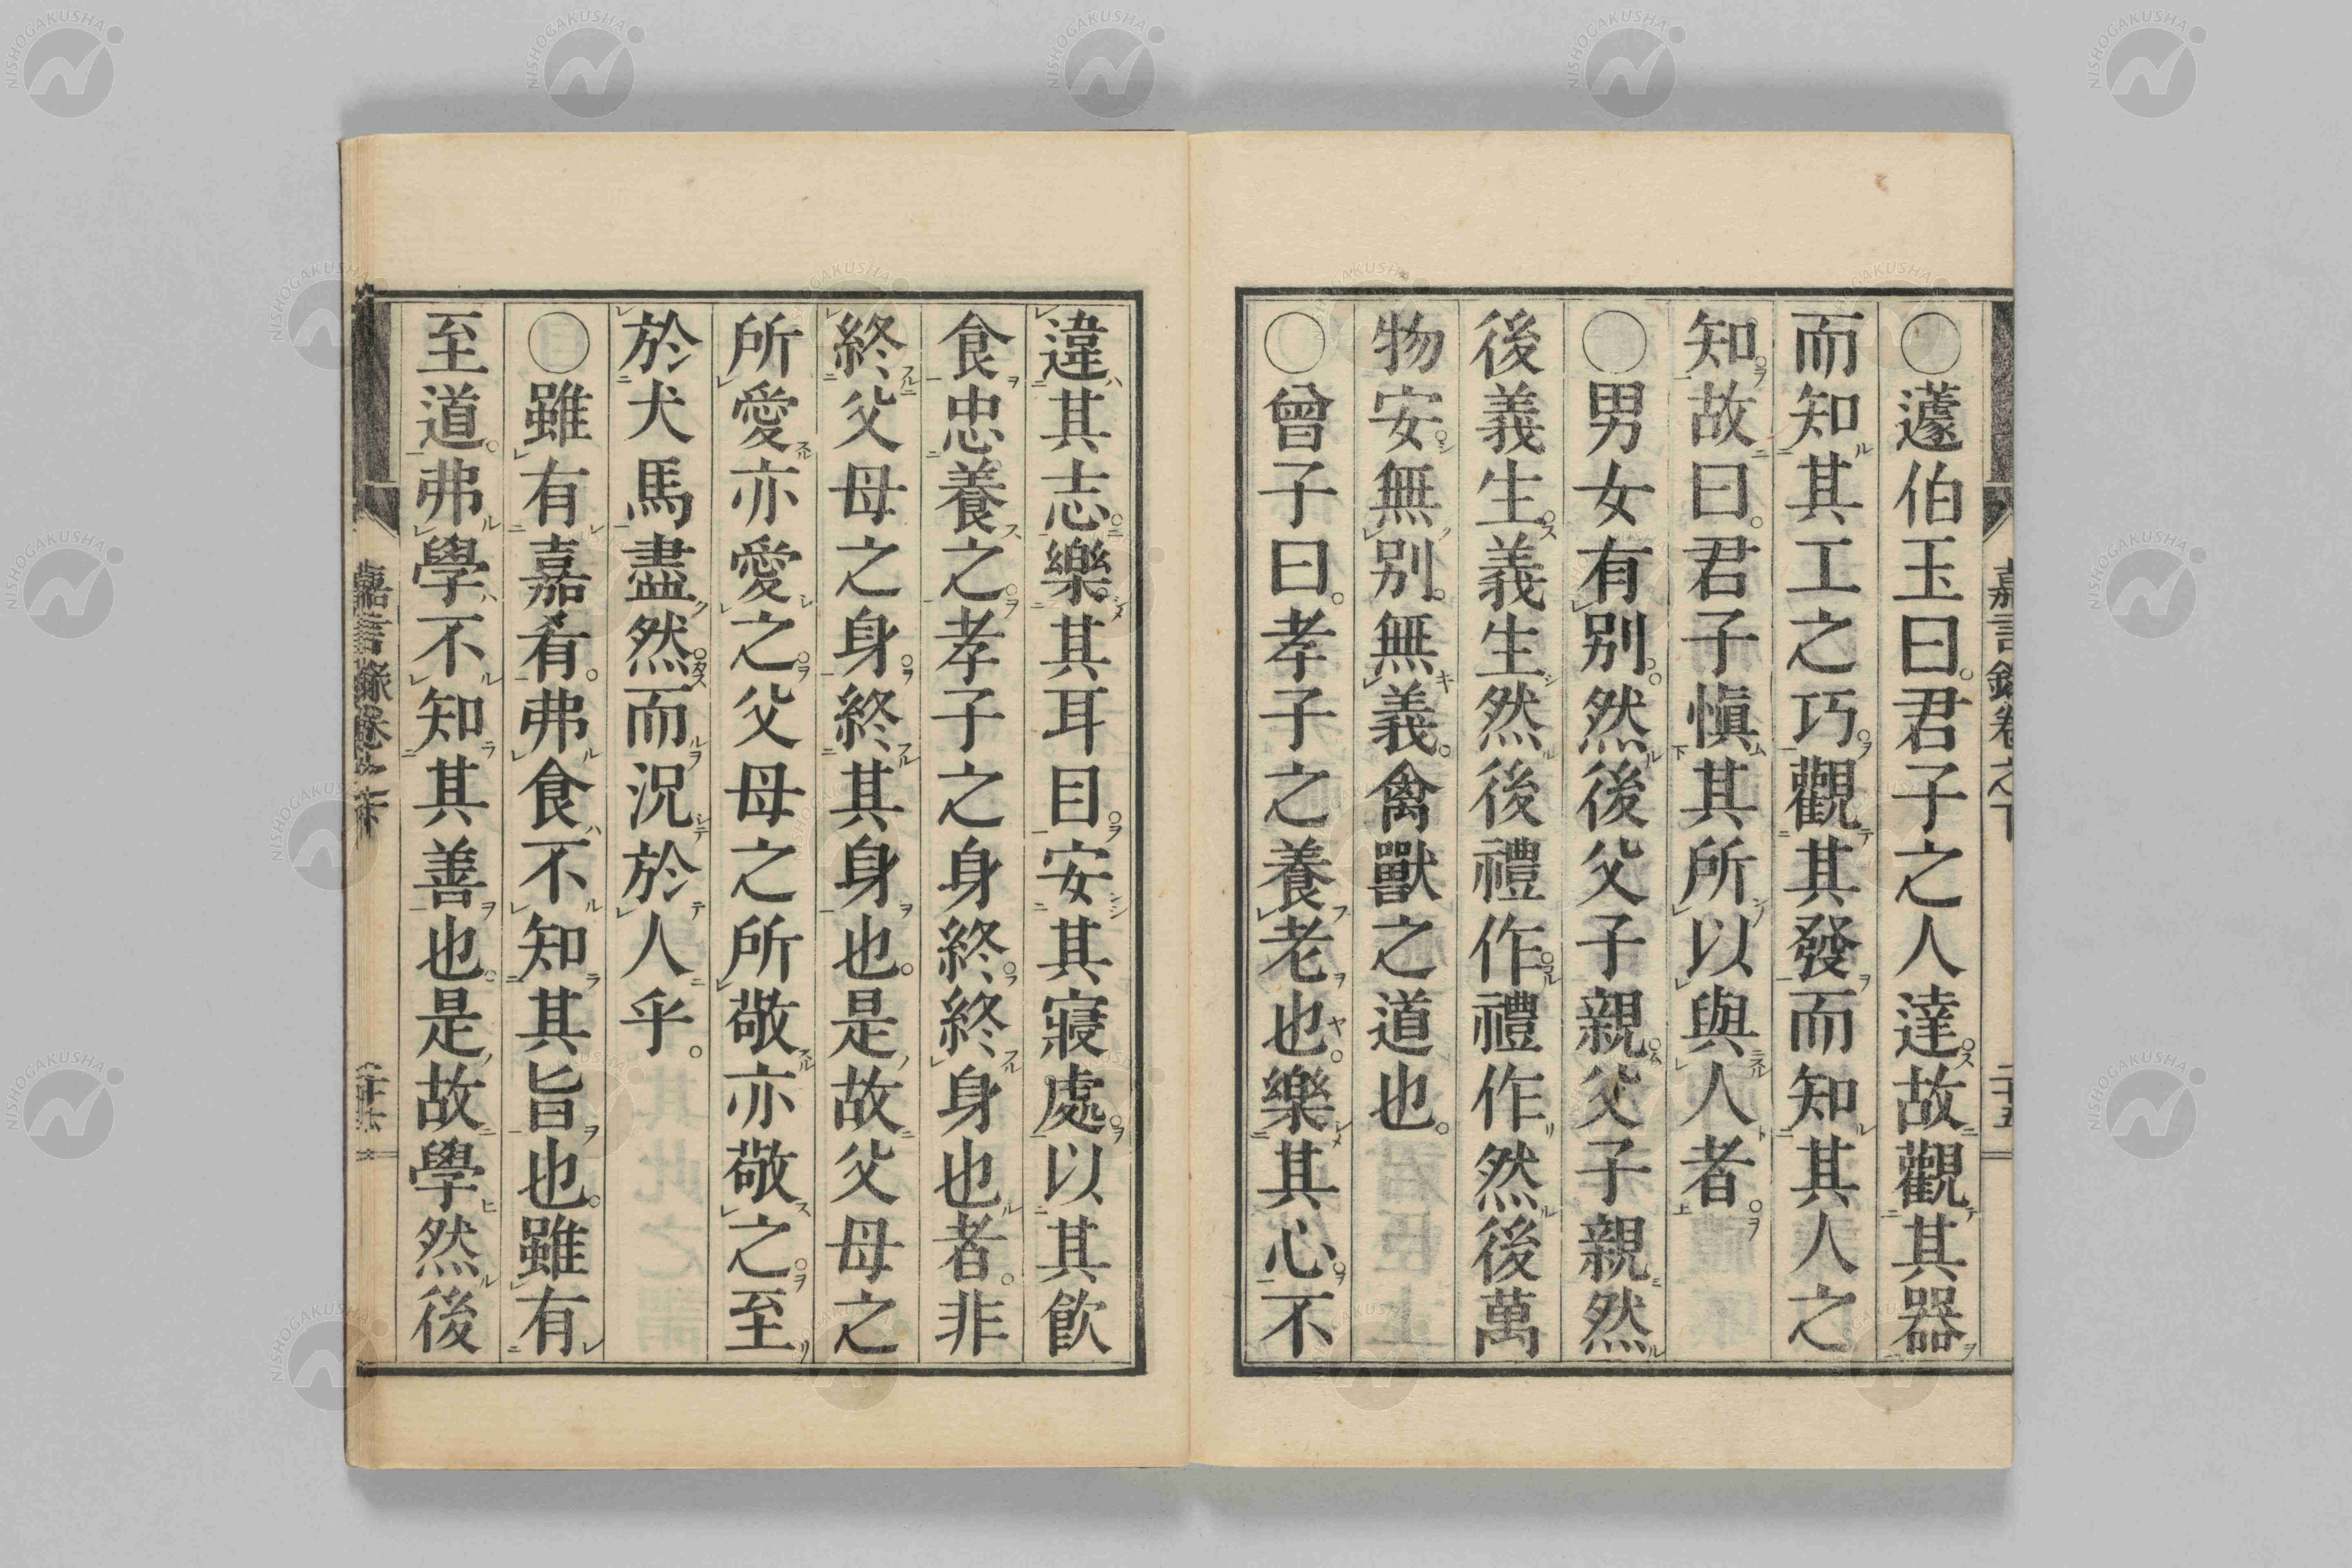 嘉言錄卷之下　二十五
○蘧伯玉曰。君子之人達。故觀其器
而知其工之巧。觀其發而知其人之
知。故曰。君子愼其所以與人者。
○男女有別。然後父子親。父子親然
後義生。義生然後禮作。禮作然後萬
物安。無別。無義。禽獸之道也。
○曾子曰。孝子之養老也。樂其心不
違其志。樂其耳目。安其寢處。以其飮
食忠養之。孝子之身終。終身也者。非
終父母之身。終其身也。是故父母之
所愛亦愛之。父母之所敬亦敬之。至
於犬馬盡然。而況於人乎。
○雖有嘉肴。弗食不知其旨也。雖有
至道。弗學不知其善也。是故學然後
嘉言錄卷之下
NISHOGAKUSHA